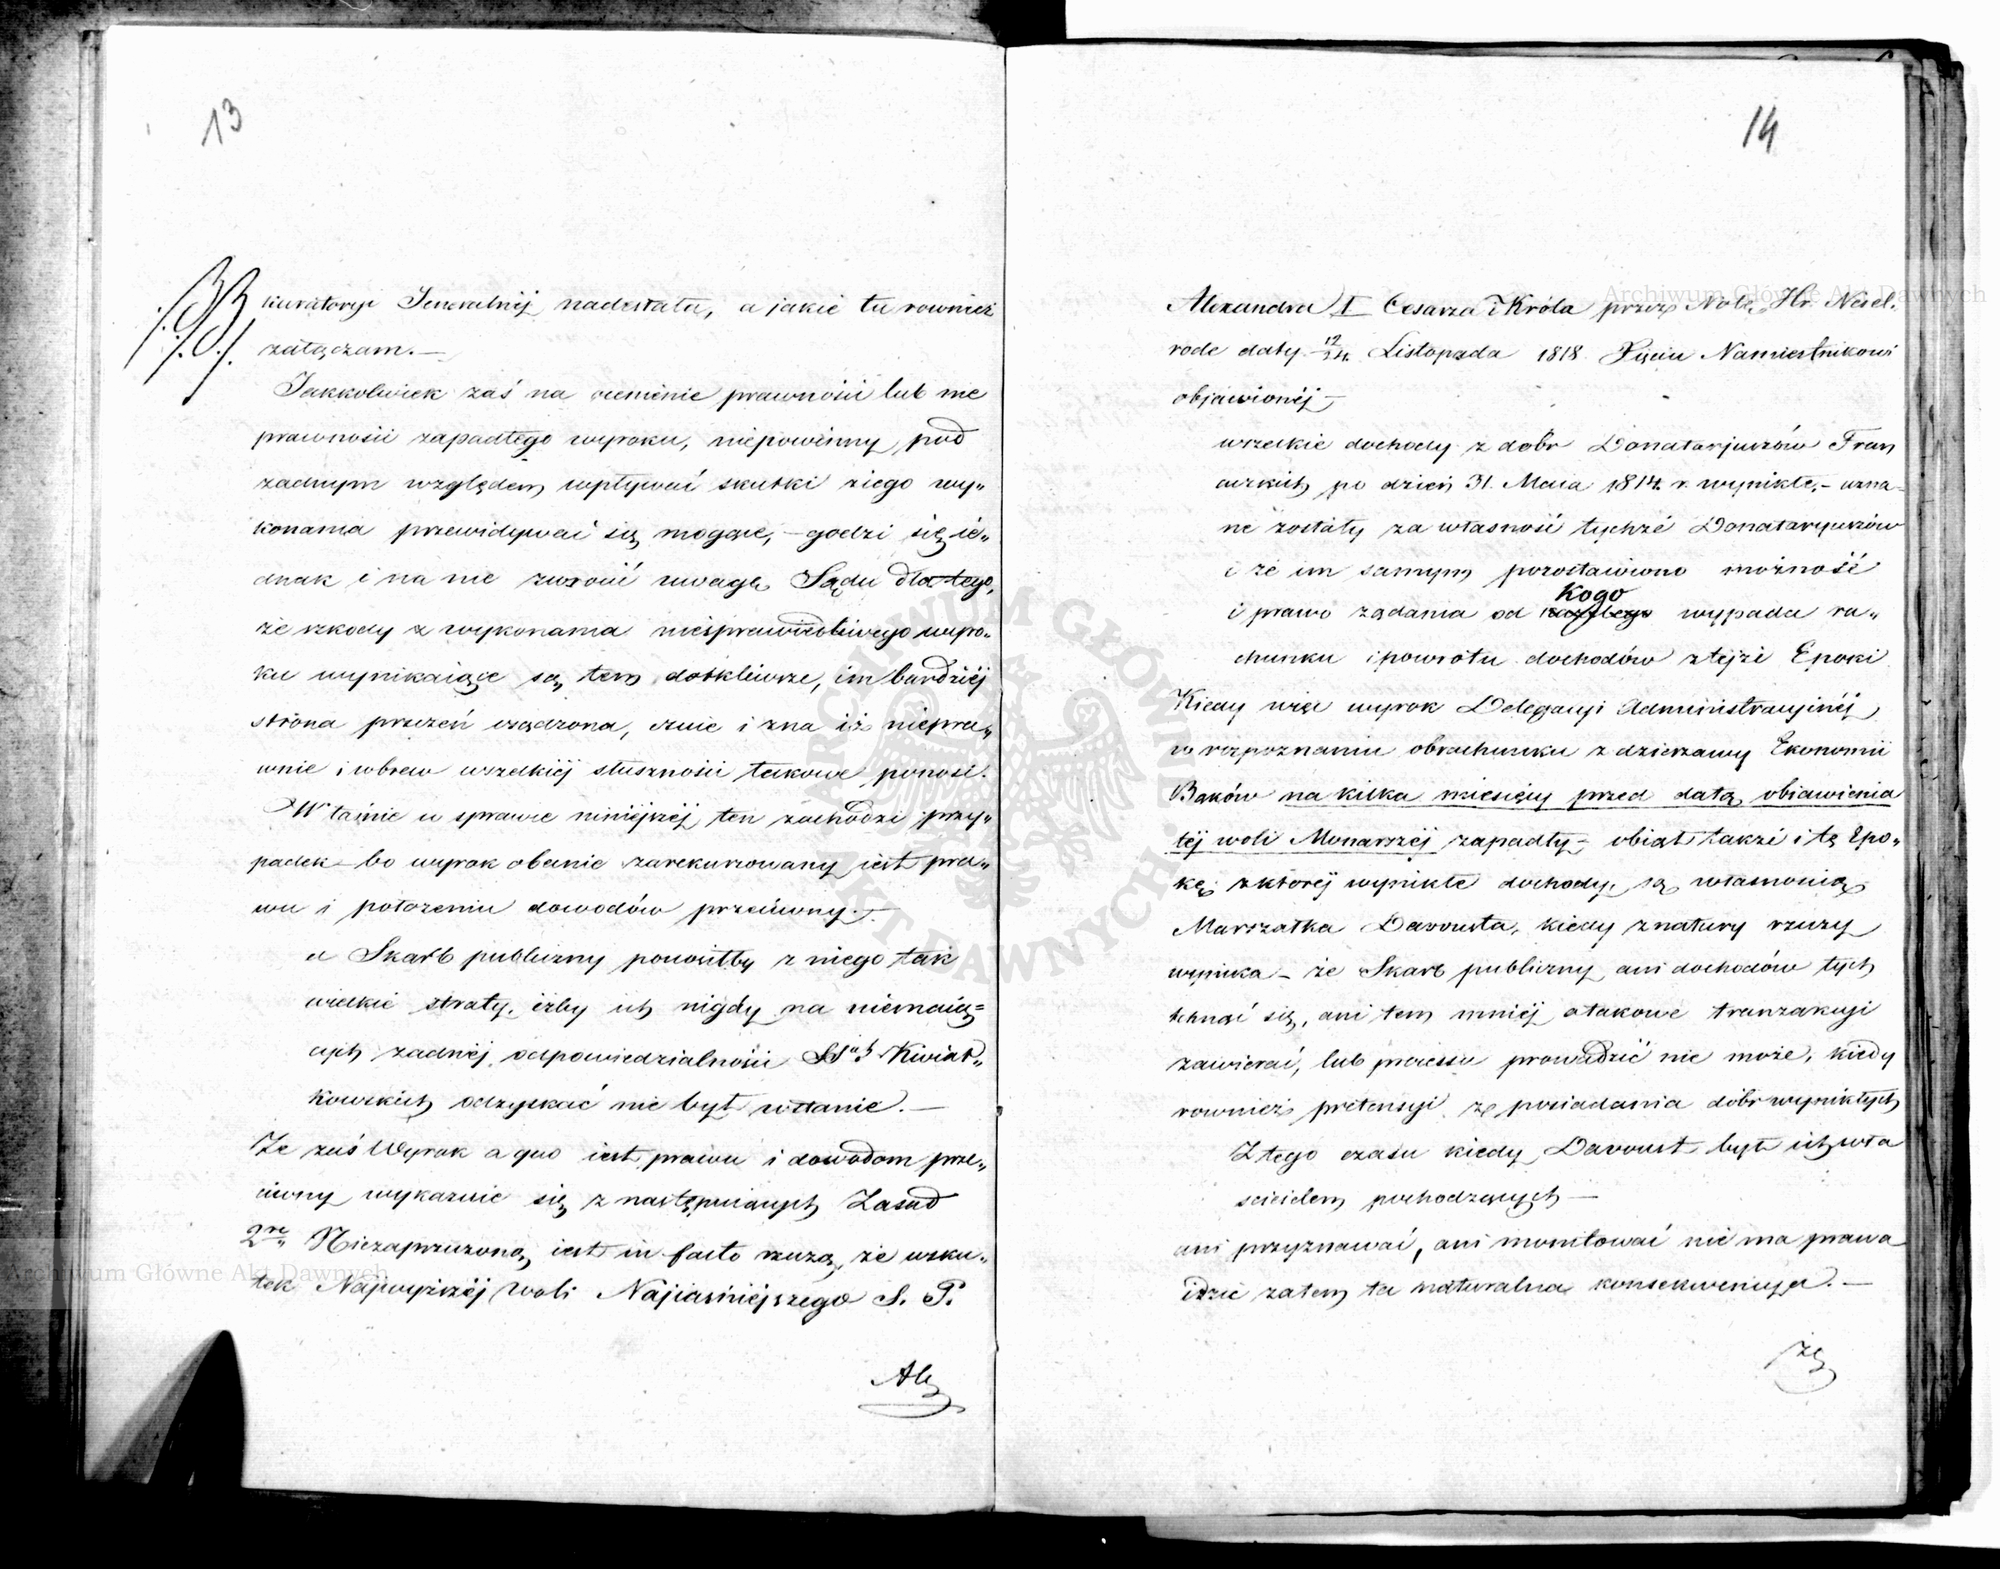 13
kuratoryi Jeneralnéj nadesłała, a jakie tu również
załączam.—
Jakkolwiek zaś na ocenienie prawności lub nie
prawności zapadłego wyroku, niepowinny pod
żadnym względem wpływać skutki z iego wy„
konania przewidywać się mogące,— godzi się ie„
dnak i na nie zwrócić uwagę Sądu dla tego,
że szkody z wykonania niesprawiedliwego wyro„
ku wynikaiące są tem dotkliwsze, im bardziéj
strona przezeń osądzona, czuie i zna iż niepra„
wnie i wbrew wszelkiéj słuszności takowe ponosi.
Właśnie w sprawie niniéjszéj ten zachodzi przy„
padek— bo wyrok obecnie zarekurzowany iest pra„
wu i położeniu dowodów przeciwny.—
a Skarb publiczny poniósłby z niego tak
wielkie straty, iżby ich nigdy na niemaią=
cych żadnéj odpowiedzialności SS^ch Kwiat„
kowskich odzyskać nie był wstanie.—
Że zaś Wyrok a quo iest prawu i dowodom prze„
ciwny wykazuie się z następuiących Zasad
2^re Niezaprzeczoną iest in facto rzeczą, że wsku„
tek Najwyższéj woli Najiaśniéjszego S. P.
Ale
14
Alexandra I Cesarza i Króla przez Notę Hr. Nesel.
rode daty 12/24 Listopada 1818 Xięciu Namiestnikowi
objawionéj—
wszelkie dochody z dóbr Donatarjuszów Fran
cuzkich po dzień 31. Maia 1814. r. wynikłe,— uzna„
ne zostały za własność tychże Donataryuszów
i że im samym pozostawiono możność
kogo
i prawo żądania od wypada ra„
chunku i powrotu dochodów z téjże Epoki
Kiedy więc wyrok Delegacyi Administracyjnéj
w rozpoznaniu obrachunku z dzierżawy Ekonomii
Bąków na kilka miesięcy przed datą obiawienia
téj woli Monarszéj zapadły— obiął także i tę Epo„
kę z któréj wynikłe dochody, są własnością
Marszałka Davousta, kiedy z natury rzeczy
wynika— że Skarb publiczny ani dochodów tych
tchnąć się, ani tem mniéj o takowe tranzakcyi
zawierać, lub processu prowadzić nie może, kiedy
również pretensyi z posiadania dóbr wynikłych
Z tego czasu kiedy Davoust był ich wła
ścicielem pochodzących—
ani przyznawać, ani monitować nie ma prawa
idzie zatem ta naturalna konsekwencya.—
że
Archiwum Główne Akt Dawnych
Archiwum Główne Akt Dawnych
ARCHIWUM GŁÓWNE AKT DAWNYCH